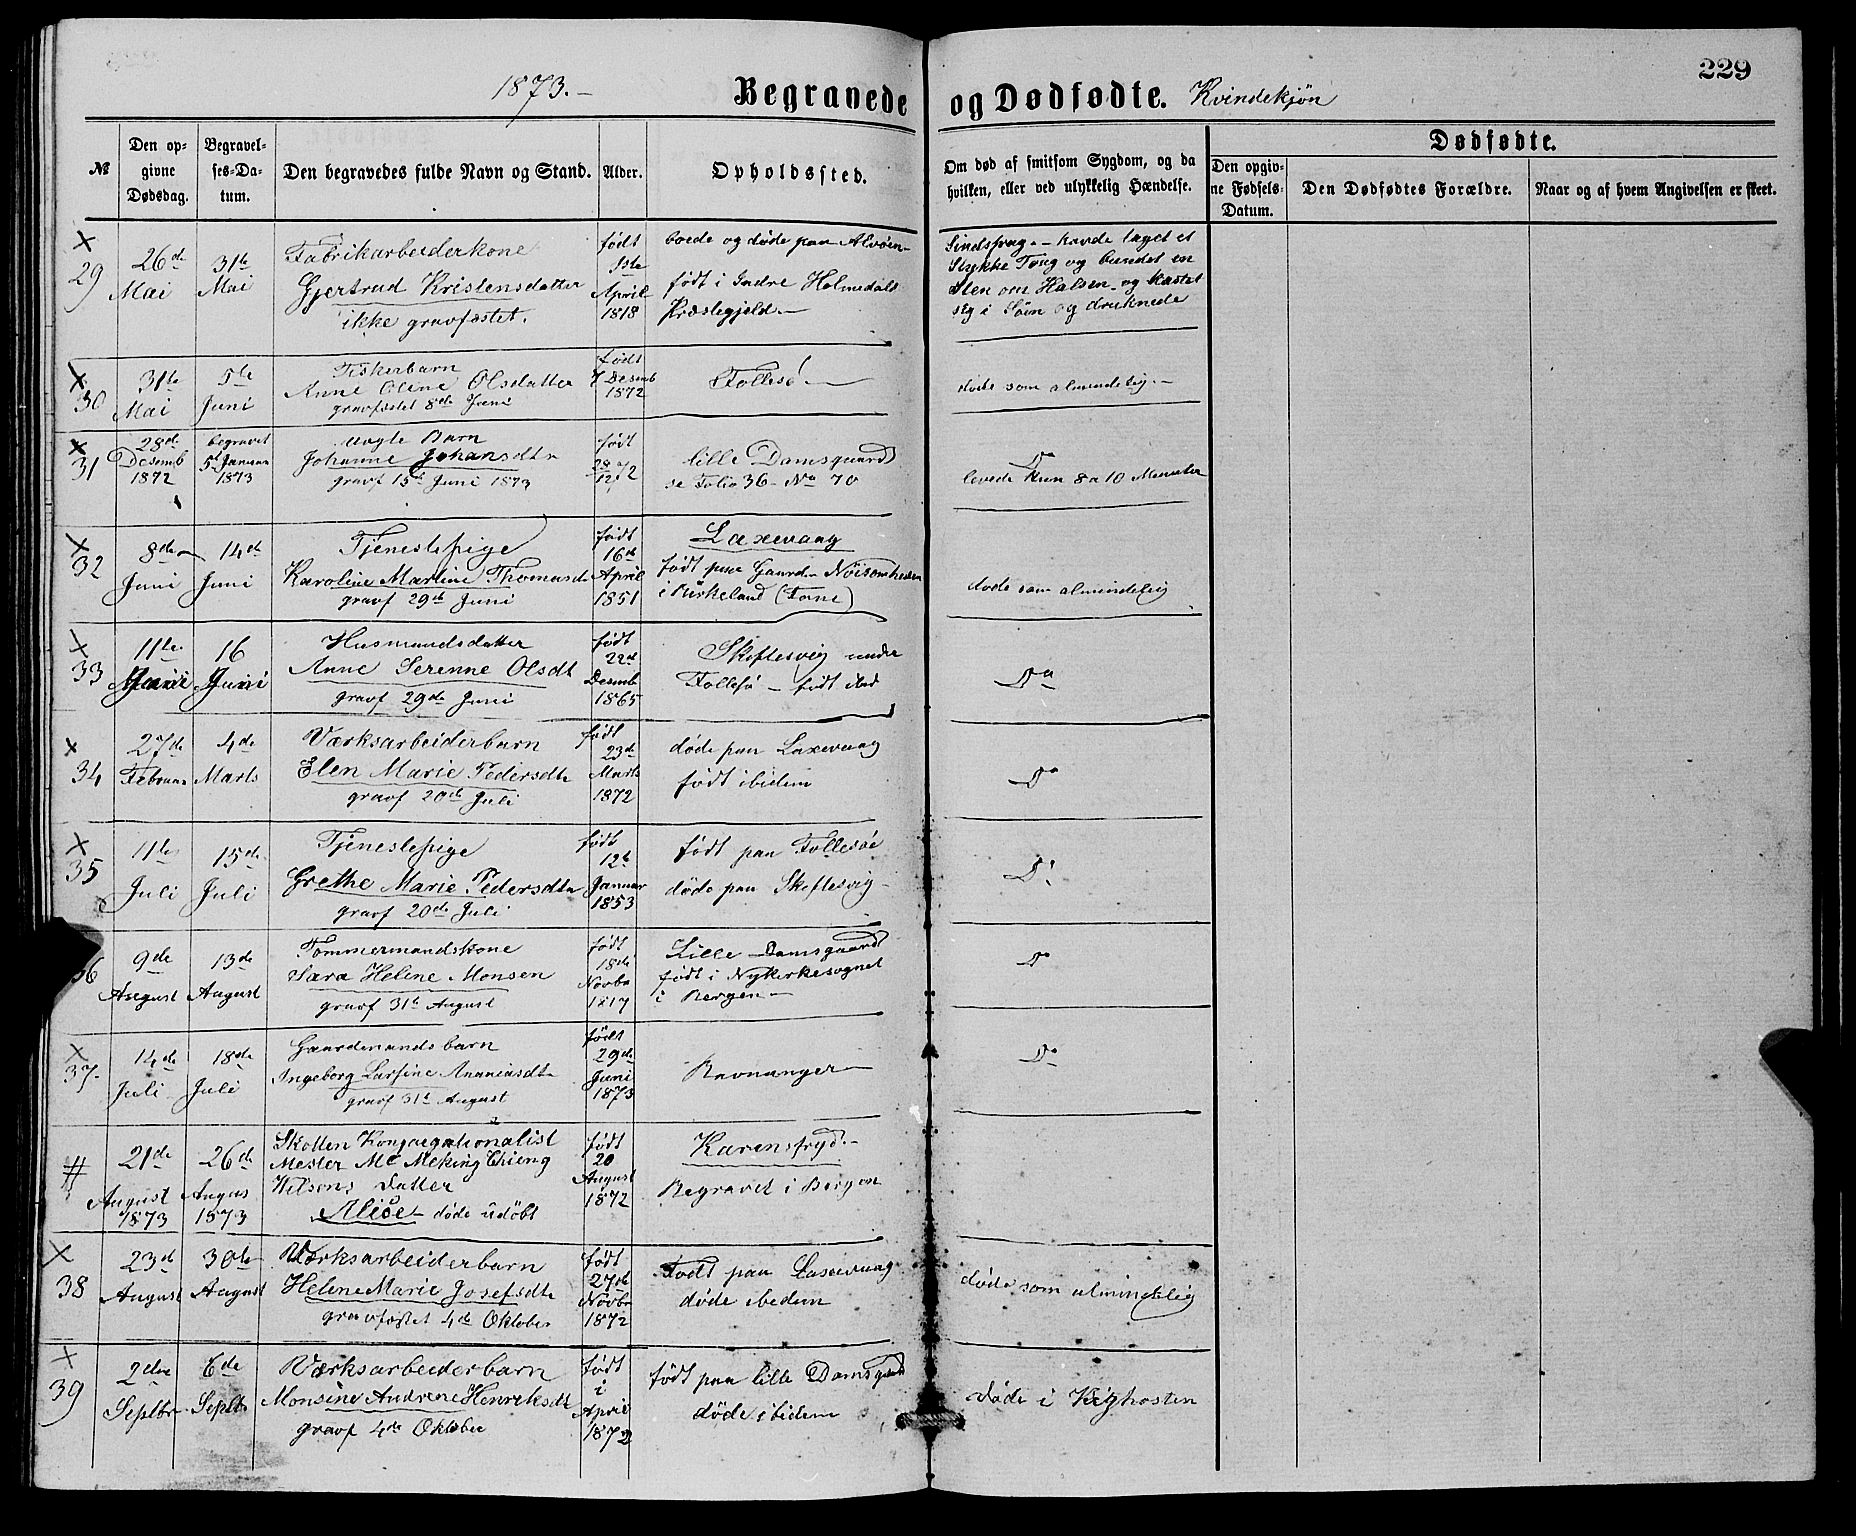 229
1873.-
Begravede og Dødfødte. Kvindekjøn
№
Den op-
givne
Dødsdag.
Begravel-
ses-Da-
tum.
Den begravedes fulde Navn og Stand.
Alder.
Opholdssted.
Om død af smitsom Sygdom, og da
hvilken, eller ved ulykkelig Hændelse.
Dødfødte.
Den opgiv-
ne Fødsels-
Datum.
Den Dødfødtes Forældre.
Naar og af hvem Angivelsen er skeet.
×
29
26de
Mai
31te
Mai
Fabrikarbeiderkone
Gjertrud Kristensdatter
ikke gravfæstet.
født
1ste
April
1818
boede og døde paa Alvøen
født i Indre Holmedals
Præstegjeld.-
Sindssvag.- havde taget et
Stykke Toug og bundet en
Sten om Halsen og kastet
sig i Søen og druknede
×
30
31te
Mai
5te
Juni
Fiskerbarn
Anne Oline Olsdatter
gravfæstet 8de Juni
født
7 Desemb
1872
Follesø.-
døde som almindelig.-
×
31
28de
Desemb
1872
begravet
5t Januar
1873
uægte Barn
Johanne Johansdtr
gravf 15de Juni 1873
født
28/12 72
lille Damsgaard
se Folio 36 No 70
Do
levede kun 8 a 10 Menuter
×
32
8de
Juni
14de
Juni
Tjenestepige
Karoline Martine Thomasd
gravf 29de Juni
født
16de
April
1851
Laxevaag
født paa Gaarden Nøisomheden
i Birkeland (Fane)
døde som almindelig
×
33
11te
Juni
16
Juni
Husmandsdatter
Anne Serenne Olsdt
gravf 29de Juni
født
22de
Desemb
1865
Skiftesvig under
Follesø - født ibid
Do
×
34
27de
Februar
4de
Marts
Værksarbeiderbarn
Elen Marie Pedersdtr
gravf 20de Juli
født
23de
Marts
1872
døde paa Laxevaag
født ibidem
Do
×
35
11te
Juli
15de
Juli
Tjenestepige
Grethe Marie Pedersdtr
gravf 20de Juli
født
12te
Januar
1853
født paa Follesøe
døde paa Skiftesvig
Do
36
9de
August
13de
August
Tømmermandskone
Sara Helene Monsen
gravf 31te August
født
18de
Novbr
1817
Lille Damsgaard
født i Nykirkesognet
i Bergen -
Do
×
37
14de
Juli
18de
Juli
Gaardmandsbarn
Ingeborg Larsine Ananiasdtr
gravf 31te August
født
29de
Juni
1873
Ravnanger
Do
#
21de
August
1873
26de
Augus
1873
Skotten Kongregationalist
Mester Mc Meking Chieng
Wilsons Datter
Alise døde udøbt
født
20
August
1872
Karensfryd.-
Begravet i Bergen
×
38
23de
August
30te
August
Værksarbeiderbarn
Helene Marie Josefsdtr
gravfæstet 4de Oktober
født
27de
Novbr
1872
Født paa Laxevaag
døde ibedem
døde som almindelig
×
39
2den
Septbr
6de
Septbr
Værksarbeiderbarn
Monsine Andrene Henriksdt
gravf 4de Oktober
født
i
April
1872
født paa lille Damsgaard
døde ibidem
døde i Kighosten